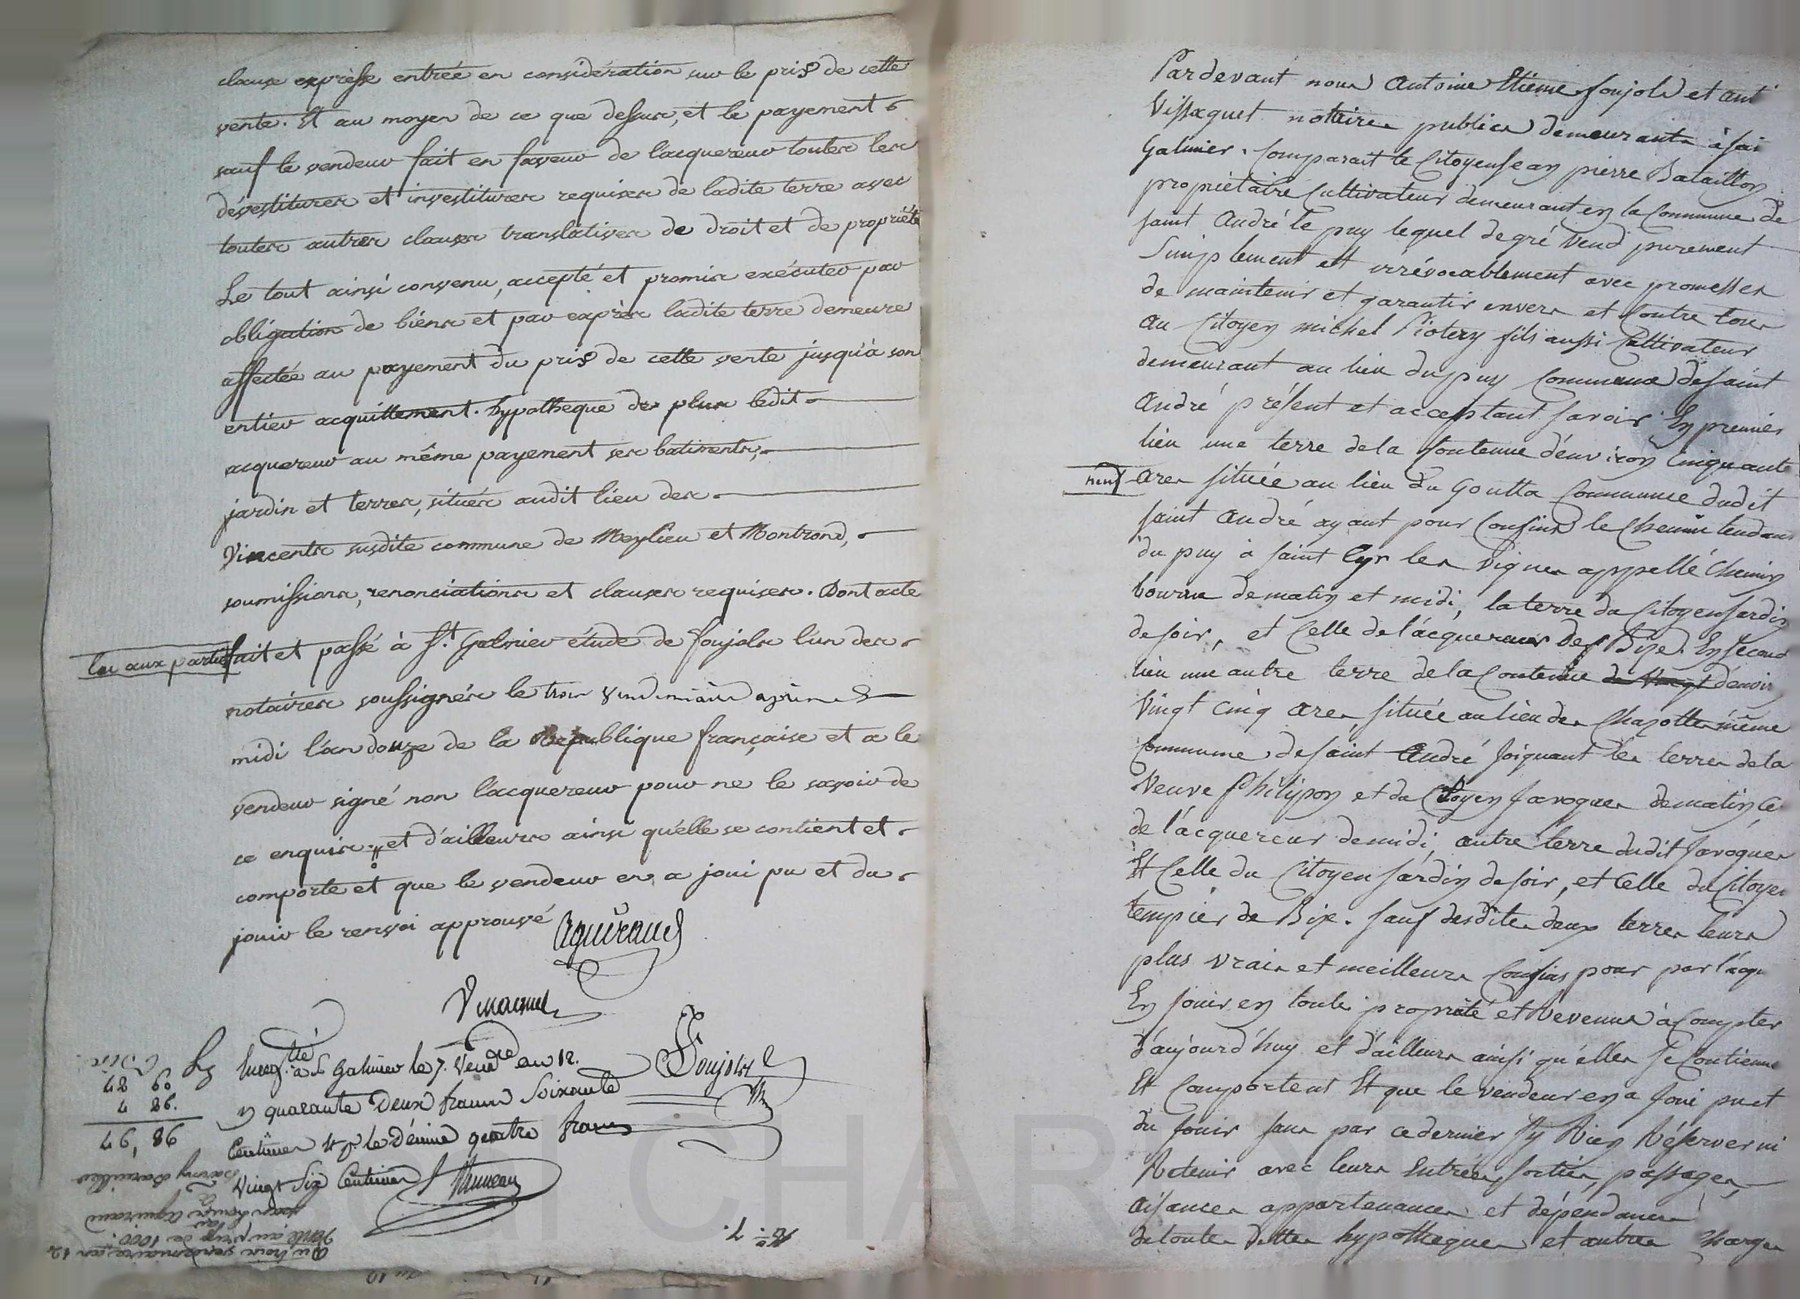 clause expresse entrée en considération sur le prix de cette
vente. Et au moyen de ce que dessus, et le payement
sauf le vendeur fait en faveur de l'acquereur toutes les
dévestitures et investitures requises de ladite terre avec
toutes autres clauses translatives de droit et de propriété
Le tout ainsi convenu, accepté et promis exécuter par
obligation de biens et par exprès ladite terre demeure
affectée au payement du prix de cette vente jusqu'à son
entier acquittement. hypotheque de plus ledit
acquereur au même payement ses batiments,
jardin et terres, situés audit lieu des
Vincents susdite commune de Meylieu et Montrond,
soumissions, renonciations et clauses requises. Dont acte
lu aux parties
fait et passé à St. Galmier étude de foujols l'un des
notaires soussignés le trois vendemiaire après
midi l'an douze de la République française et a le
vendeur signé non l'acquereur pour ne le savoir de
ce enquis. et d'ailleurs ainsi qu'elle se contient et
comporte et que le vendeur en a joui pu et du
jouir le renvoi approuvé
Aguiraud
Foujols
Enregtré à St Galmier le 7. Vendre an 12.
quarante Deux francs Soixante
Centimes et pr le Décime quatre francs
Vingt Six Centimes
42 60
4 26.
46, 86
No. 7.
Pardevant nous Antoine Etienne foujols et ant
Vissaguet notaires publics demeurants à sai
Galmier. Comparait le Citoyen Jean pierre Bataillon
propriétaire Cultivateur demeurant en la Commune de
saint André le puy lequel de gré vend purement
Simplement et irrévocablement avec promesses
de maintenir et garantir envers et Contre tous
au Citoyen michel Piotery fils aussi Cultivateur
demeurant au lieu du puy Commune de saint
André présent et acceptant savoir En premier
lieu une terre de la Contenue d'environ Cinquante
neuf
ares située au lieu du Goutta Commune dudit
saint André ayant pour Confins le Chemin tendant
du puy à saint Cyr les Vignes appellé Chemin
bourru de matin et midi, la terre du Citoyen Jardin
de soir, et Celle de l'acquereur De Bize. En second
lieu une autre terre de la Contenue de Vingt d'envir
Vingt Cinq ares située au lieu des Chazottes même
Commune de saint André Joignant les terres de la
Veuve Philipon et du Citoyen Javogues de matin, Ce
de l'acquereur de midi, autre terre dudit Javogues
Et Celle du Citoyen Jardin de soir, et Celle du Citoyen
tempier de Bize. sauf desdites deux terres leurs
plus vrais et meilleurs Confins pour par l'acqu
En Jouir en toute propriété et Revenus à Compter
d'aujourd'huy et d'ailleurs ainsi qu'elles se Contienne
Et Comportent Et que le vendeur en a Joui pu et
du Jouir sans par ce dernier s'y Rien Réserver ni
Retenir avec leurs Entrées, sorties, passages,
aisances appartenances et dépendances
de toutes dettes hypotheques et autres Charges